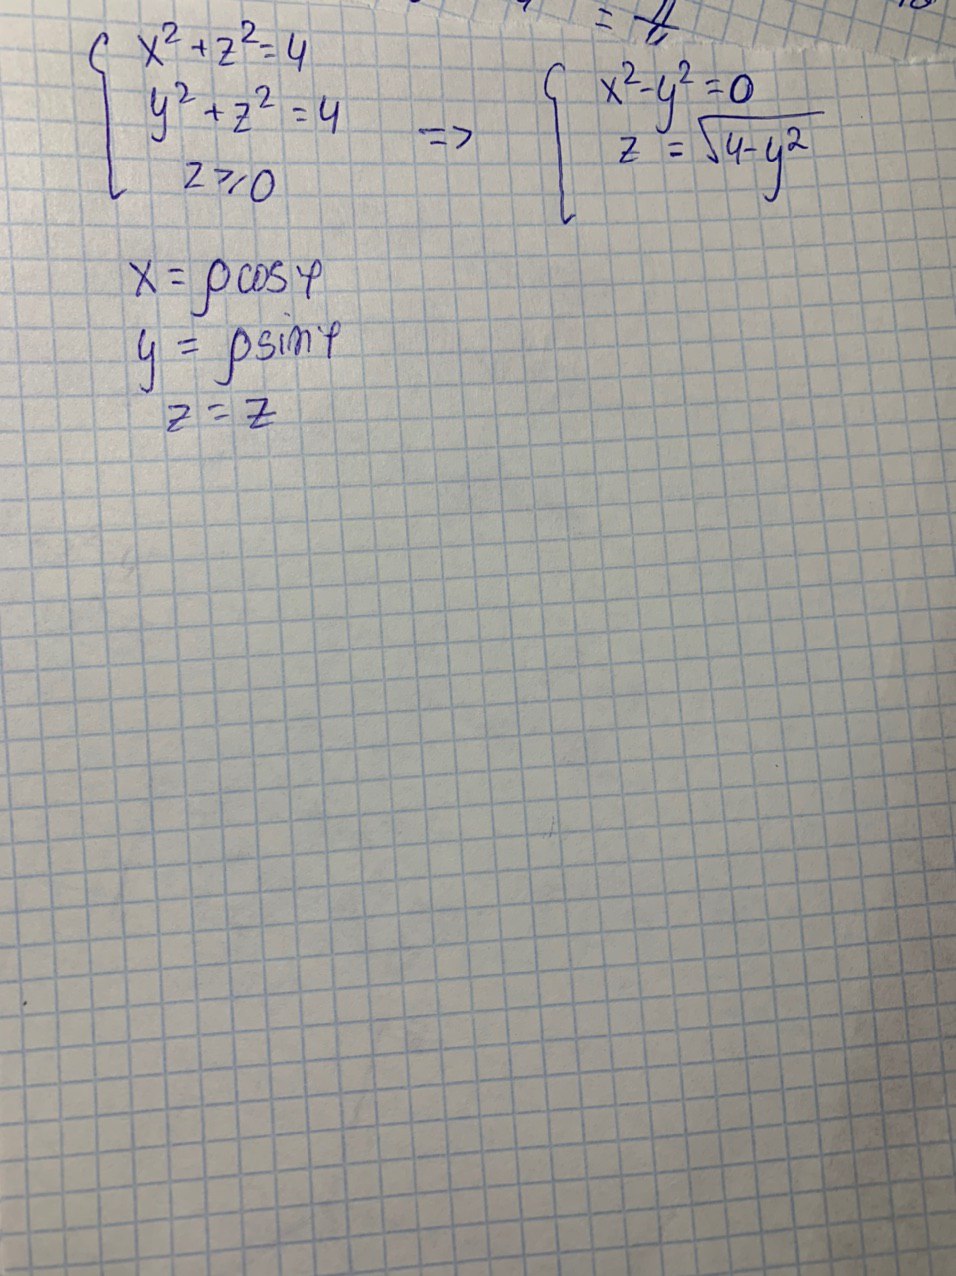 x² + z² = 4
y² + z² = 4
z ⩾ 0
=>
x² - y² = 0
z = √(4 - y²)
x = ρ cos φ
y = ρ sin φ
z = z